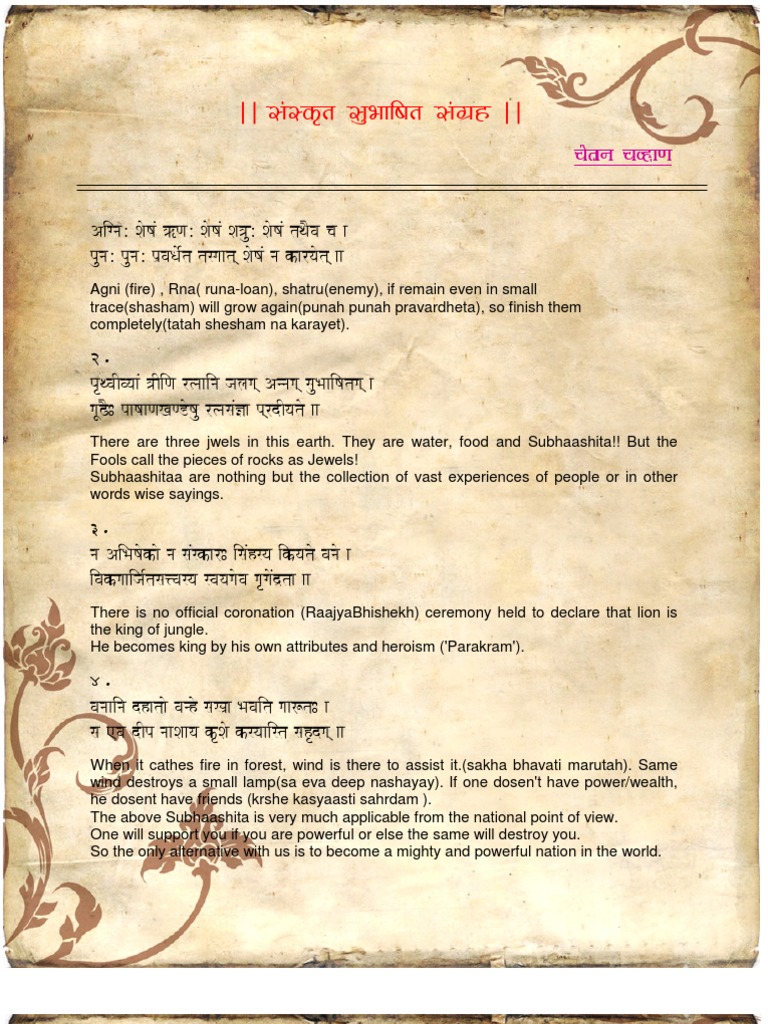 || संस्कृत सुभाषित संग्रह ||
चेतन चव्हाण
अग्नि: शेषं ऋण: शेषं शत्रु: शेषं तथैव च ।
पुन: पुन: प्रवर्धेत तस्मात् शेषं न कारयेत् ॥
Agni (fire) , Rna( runa-loan), shatru(enemy), if remain even in small
trace(shasham) will grow again(punah punah pravardheta), so finish them
completely(tatah shesham na karayet).
२.
पृथ्वीव्यां त्रीणि रत्नानि जलम् अन्नम् सुभाषितम् ।
मूढैः पाषाणखण्डेषु रत्नसंज्ञा प्रदीयते ॥
There are three jwels in this earth. They are water, food and Subhaashita!! But the
Fools call the pieces of rocks as Jewels!
Subhaashitaa are nothing but the collection of vast experiences of people or in other
words wise sayings.
३.
न अभिषेको न संस्कारः सिंहस्य क्रियते वने ।
विक्रमार्जितसत्त्वस्य स्वयमेव मृगेंद्रता ॥
There is no official coronation (RaajyaBhishekh) ceremony held to declare that lion is
the king of jungle.
He becomes king by his own attributes and heroism ('Parakram').
४.
वनानि दहातो वन्हे सखा भवति मारूतः ।
स एव दीप नाशाय कृशे कस्यास्ति सहृदम् ॥
When it cathes fire in forest, wind is there to assist it.(sakha bhavati marutah). Same
wind destroys a small lamp(sa eva deep nashayay). If one dosen't have power/wealth,
he dosent have friends (krshe kasyaasti sahrdam ).
The above Subhaashita is very much applicable from the national point of view.
One will support you if you are powerful or else the same will destroy you.
So the only alternative with us is to become a mighty and powerful nation in the world.